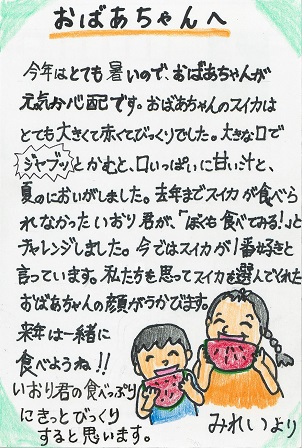 おばあちゃんへ
今年はとても暑いので、おばあちゃんが
元気か心配です。おばあちゃんのスイカは
とても大きくて赤くてびっくりでした。大きな口で
ジャブッとかむと、口いっぱいに甘い汁と、
夏のにおいがしました。去年までスイカが食べら
れなかったいおり君が、「ぼくも食べてみる!」と
チャレンジしました。今ではスイカが1番好きと
言っています。私たちを思ってスイカを選んでくれた
おばあちゃんの顔がうかびます。
来年は一緒に
食べようね!!
いおり君の食べっぷり
にきっとびっくり
すると思います。
みれいより